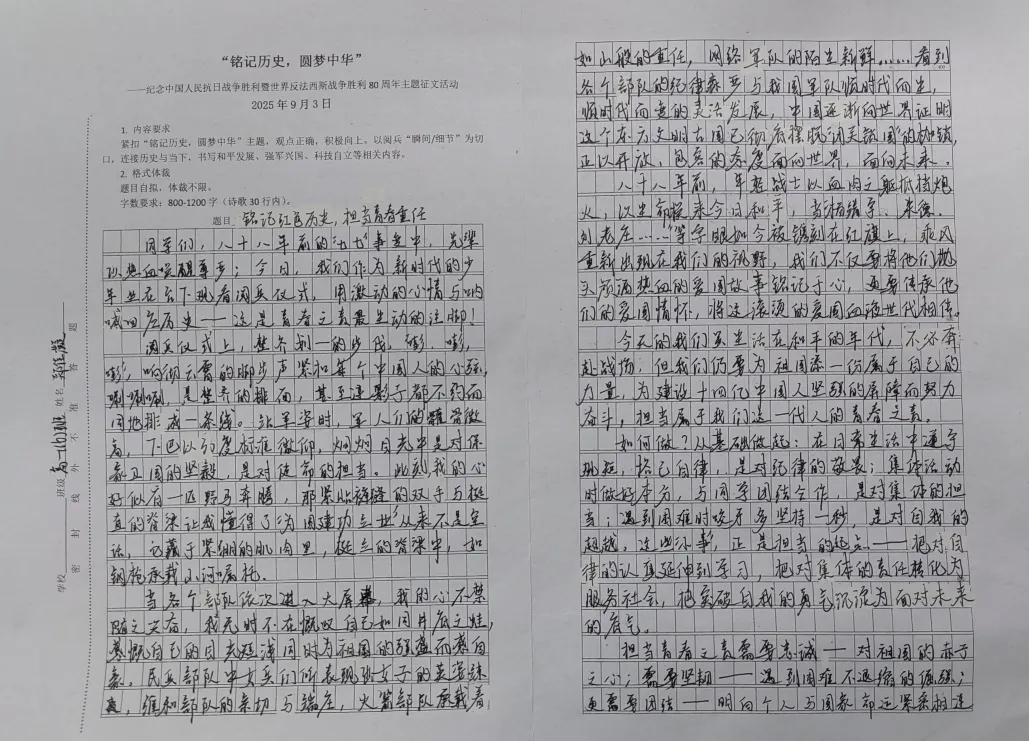 “铭记历史，圆梦中华”
——纪念中国人民抗日战争胜利暨世界反法西斯战争胜利 80 周年主题征文活动
2025 年 9 月 3 日
1. 内容要求
紧扣“铭记历史，圆梦中华”主题，观点正确，积极向上。以阅兵“瞬间/细节”为切
口，连接历史与当下，书写和平发展、强军兴国、科技自立等相关内容。
2. 格式体裁
题目自拟，体裁不限。
字数要求：800-1200 字（诗歌 30 行内）。
题目 铭记红色历史，担当青春重任
同学们，八十八年前的“七七”事变中，先辈
以热血唤醒尊严；今日，我们作为新时代的少
年坐在台下观看阅兵仪式，用激动的心情与呐
喊回应历史——这是青春之责最生动的注脚！
阅兵仪式上，整齐划一的步伐，嘭，嘭，
嘭，响彻云霄的脚步声紧扣每个中国人的心弦，
唰唰唰，是整齐的排面，甚至连影子都不约而
同地排成一条线。站军姿时，军人们的
高，下巴以 度标准微仰，炯炯目光中是对保
家卫国的坚毅，是对使命的担当。此刻，我的心
好似有一匹野马奔腾，那紧贴裤缝的双手与挺
直的脊梁让我懂得了“为国建功立业”从来不是空
话，它藏于紧绷的肌肉里，挺立的脊梁中，如
钢枪承载山河嘱托。
当各个部队依次进入大屏幕，我的心不禁
随之共奋，我无时不在慨叹自己如同井底之蛙，
感慨自己的目光短浅同时为祖国的强盛而感自
豪。民兵部队中女兵们所表现出女子的英姿飒
爽，维和部队的亲切与端庄，火箭部队承载着
如山般的重任，网络军队的陌生新鲜……看到
各个部队的纪律森严与我国军队顺时代而生，
顺时代而变的灵活发展，中国逐渐向世界证明
这个东方文明古国已彻底摆脱“闭关锁国”的枷锁，
正以开放、包容的态度面向世界，面向未来。
八十八年前，年轻战士以血肉之躯抵挡炮
火，以生命换来今日和平，当杨靖宇、来德、
刘老庄……等字眼如今被镌刻在红旗上，乘风
重新出现在我们的视野，我们不仅要将他们抛
头颅洒热血的爱国故事铭记于心，更要传承他
们的爱国情怀，将这滚烫的爱国血液世代相传。
今天的我们虽生活在和平的年代，不必奔
赴战场，但我们仍要为祖国添一份属于自己的
力量，为建设十四亿中国人坚强的屏障而努力
奋斗，担当属于我们这一代人的青春之责。
如何做？从基础做起：在日常生活中遵守
规矩，恪己自律，是对纪律的敬畏；集体活动
时做好本分，与同学团结合作，是对集体的担
当；遇到困难时咬牙多坚持一秒，是对自我的
超越，这些小事，正是担当的起点——把对自
律的认真延伸到学习，把对集体的责任转化为
服务社会，把突破自我的勇气沉淀为面对未来
的底气。
担当青春之责需要忠诚——对祖国的赤子
之心；需要坚韧——遇到困难不退缩的倔强；
更需要团结——明白个人与国家命运紧密相连
学校 班级 高一(6)班 姓名
密 封 线 外 不 准 答 题